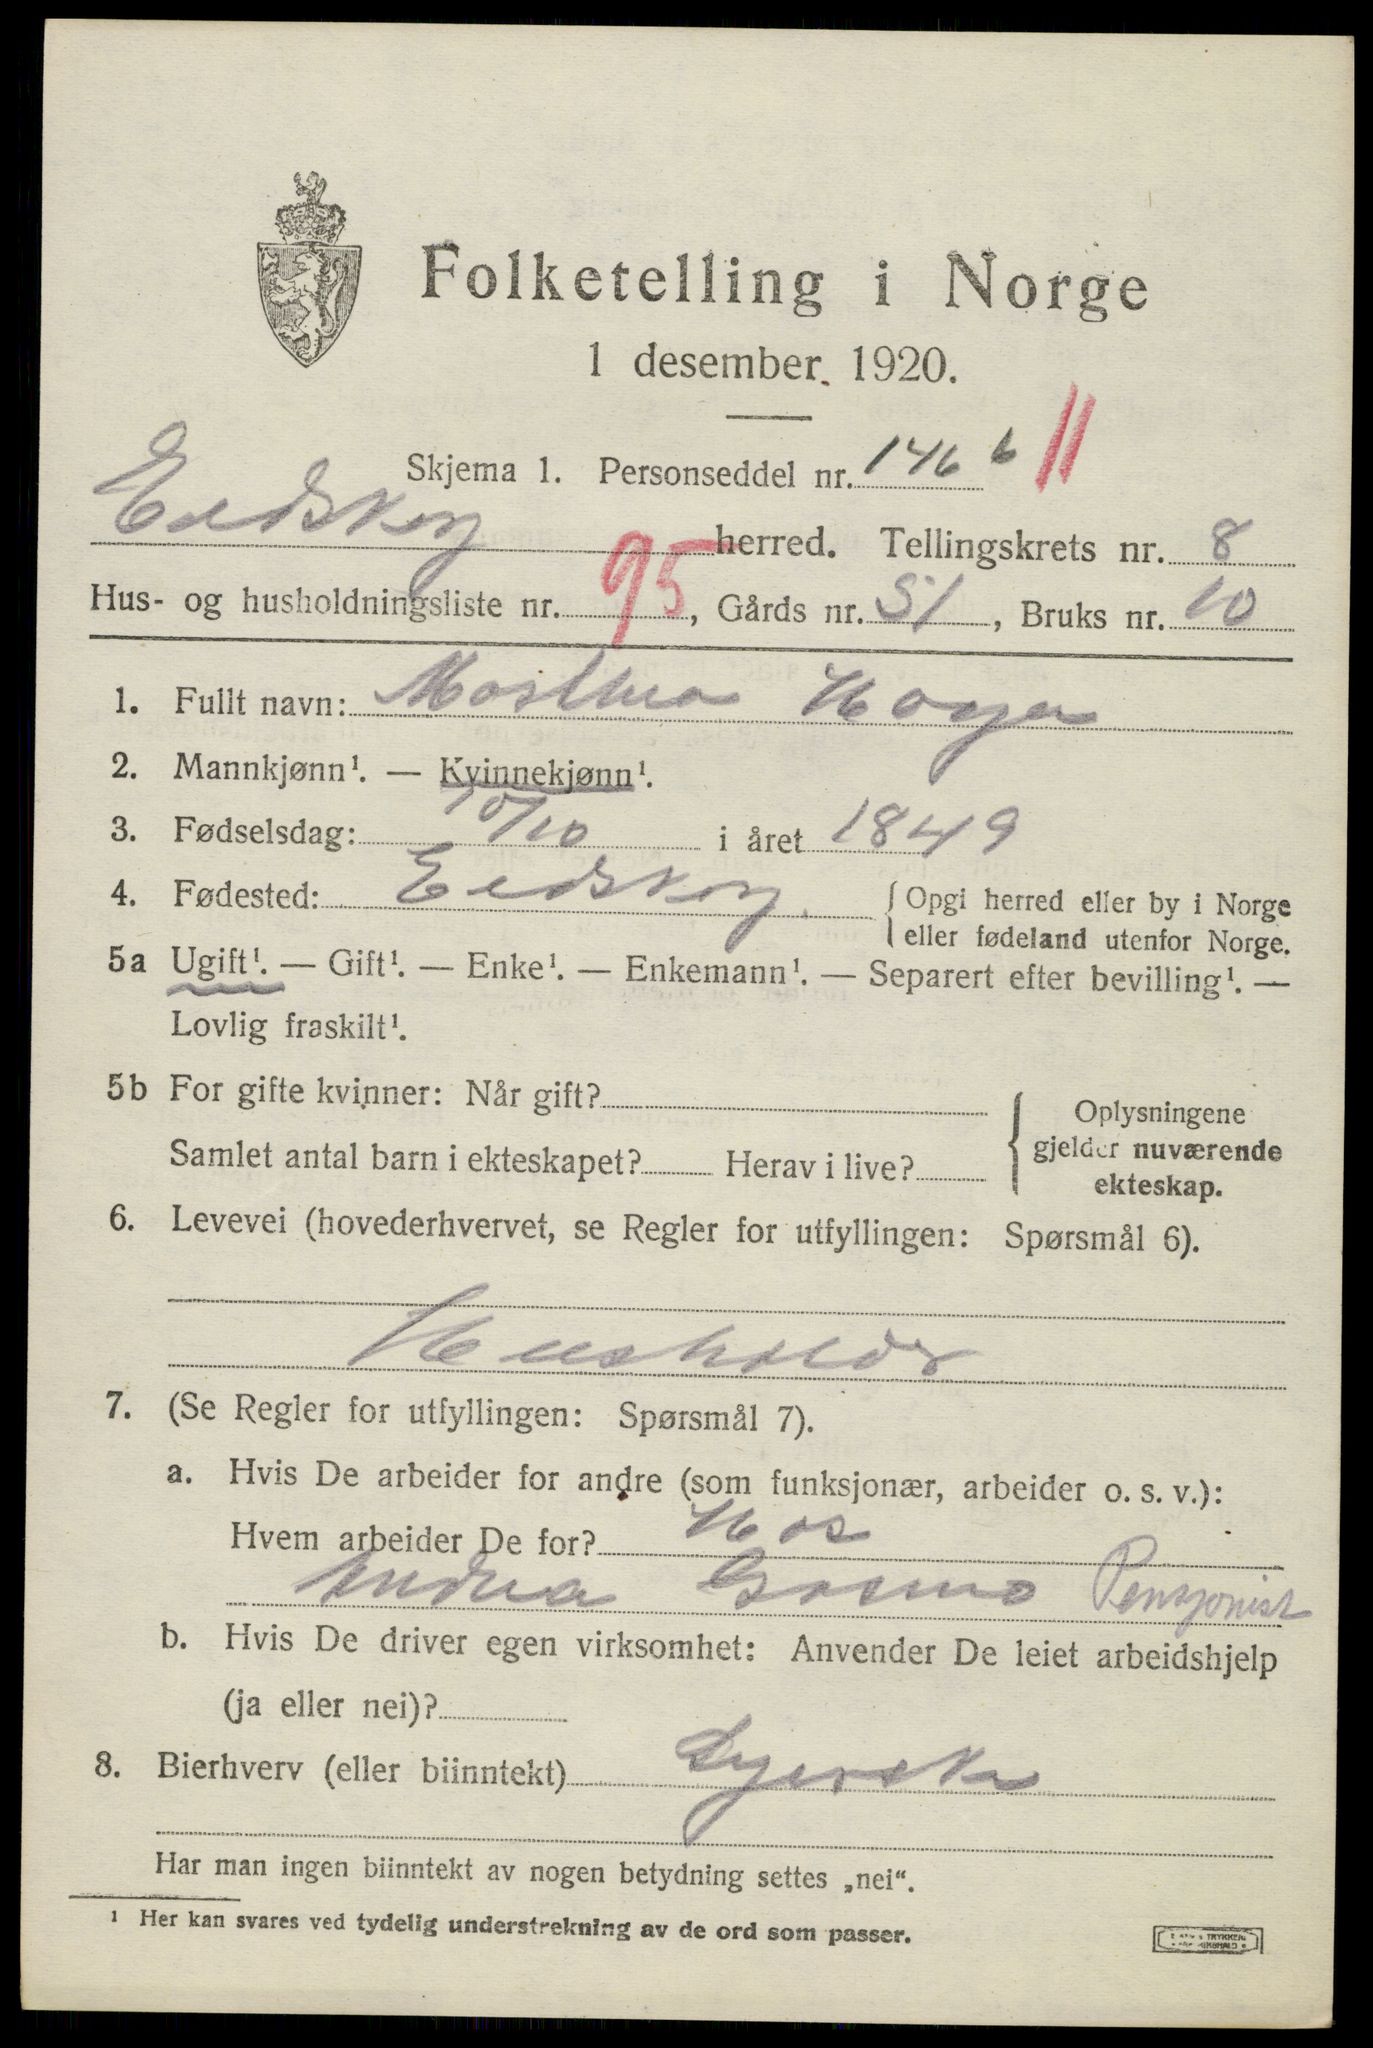 Folketelling i Norge
1 desember 1920.
Skjema 1. Personseddel nr. 146 b 11
Eidskog herred. Tellingskrets nr. 8
Hus- og husholdningsliste nr. 95, Gårds nr. 51, Bruks nr. 10
1. Fullt navn: Marthea Hagen
2. Mannkjønn¹. — Kvinnekjønn¹.
3. Fødselsdag: 10/10 i året 1849
4. Fødested: Eidskog. Opgi herred eller by i Norge
eller fødeland utenfor Norge.
5a Ugift¹. — Gift¹. — Enke¹. — Enkemann¹. — Separert efter bevilling¹. —
Lovlig fraskilt¹.
5b For gifte kvinner: Når gift?
Samlet antal barn i ekteskapet? Herav i live?
Oplysningene
gjelder nuværende
ekteskap.
6. Levevei (hovederhvervet, se Regler for utfyllingen: Spørsmål 6).
Husholder
7. (Se Regler for utfyllingen: Spørsmål 7).
a. Hvis De arbeider for andre (som funksjonær, arbeider o. s. v.):
Hvem arbeider De for? Hos
Andrea Pensjonist
b. Hvis De driver egen virksomhet: Anvender De leiet arbeidshjelp
(ja eller nei)?
8. Bierhverv (eller biinntekt)
Har man ingen biinntekt av nogen betydning settes „nei“.
¹ Her kan svares ved tydelig understrekning av de ord som passer.